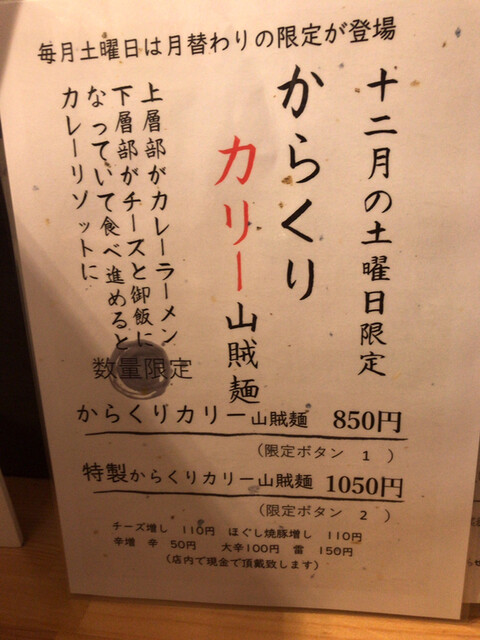 毎月土曜日は月替わりの限定が登場
十二月の土曜日限定
からくり
カリー山賊麺
上層部がカレーラーメン
下層部がチーズと御飯に
なっていて食べ進めると
カレーリゾットに
数量限定
からくりカリー山賊麺 850円
（限定ボタン 1 ）
特製からくりカリー山賊麺 1050円
（限定ボタン 2 ）
チーズ増し 110円 ほぐし焼豚増し 110円
辛増 辛 50円 大辛100円 雷 150円
（店内で現金で頂戴致します）